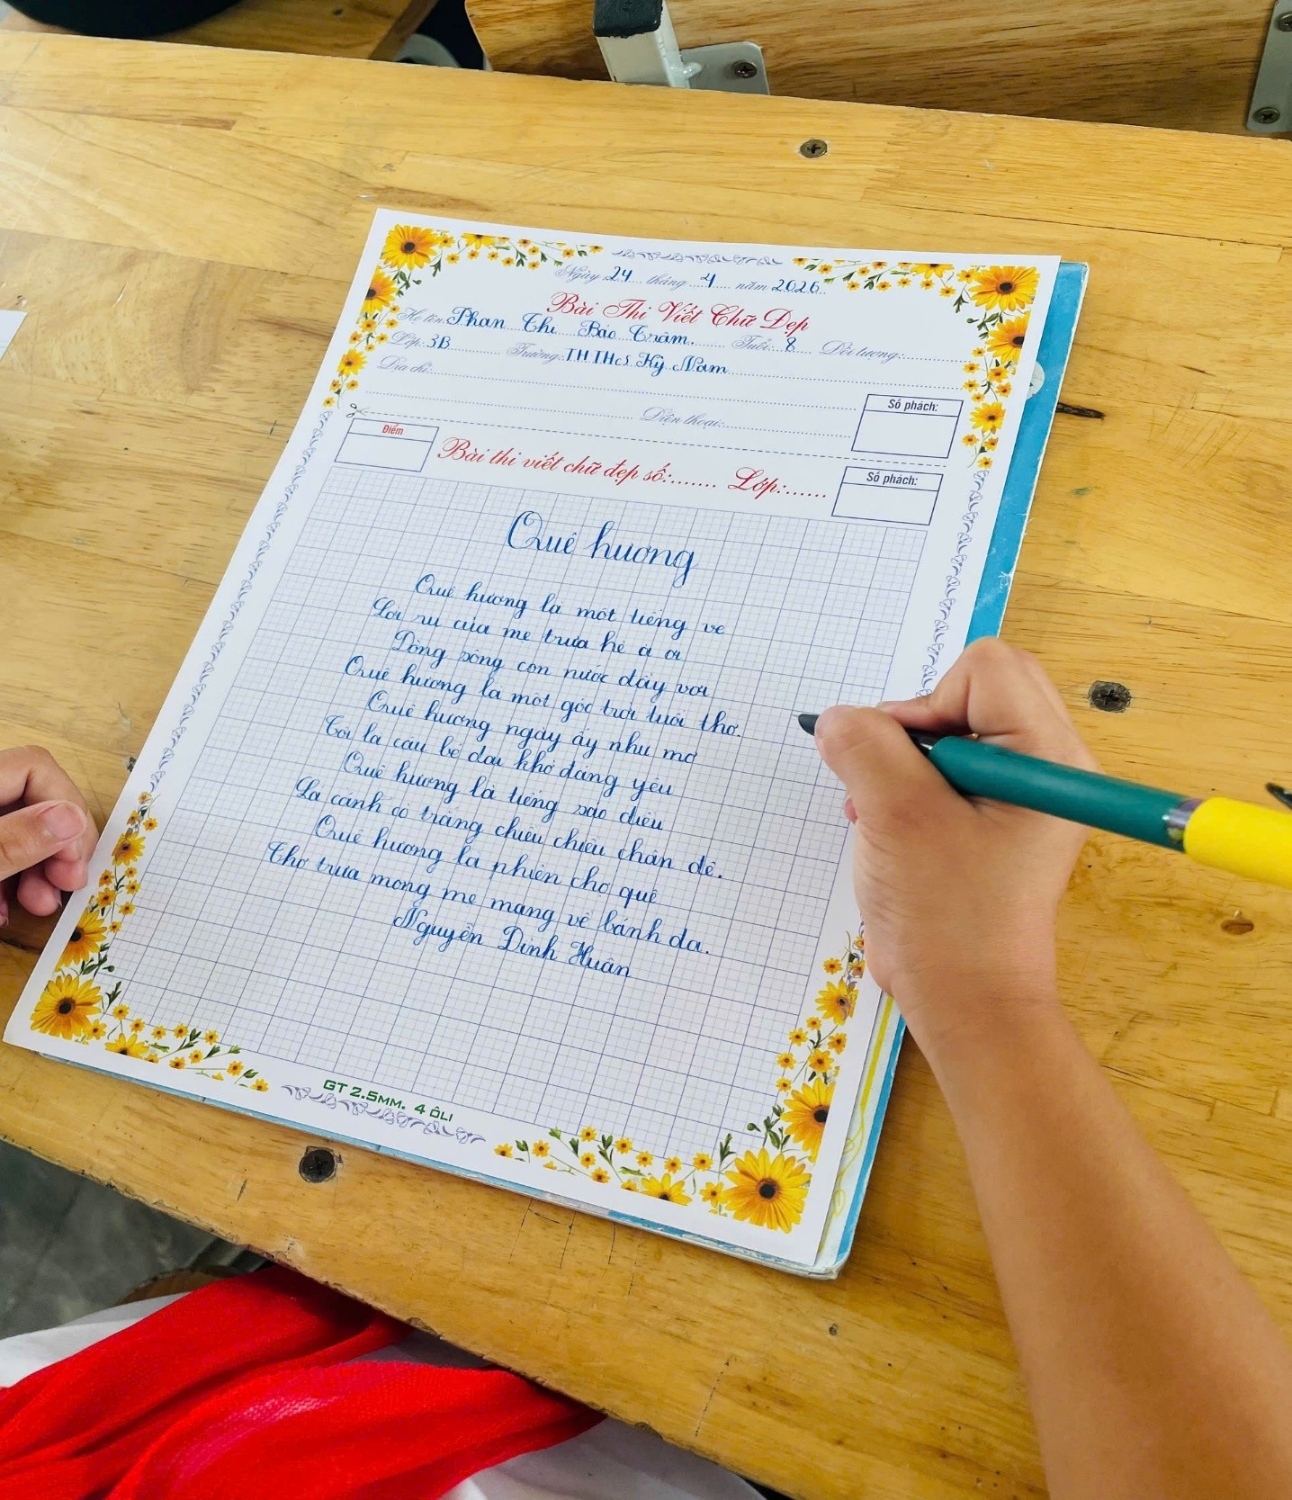 Ngày 24 tháng 4 năm 2026
Bài Thi Viết Chữ Đẹp
Họ tên: Phan Thi Bảo Trâm. Tuổi: 8 Đối tượng:
Lớp: 3B Trường: TH THCS Kỳ Nam
Địa chỉ:
Điện thoại:
Số phách:
Điểm
Bài thi viết chữ đẹp số:....... Lớp:......
Số phách:
Quê hương
Quê hương là một tiếng ve
Lời ru của mẹ trưa hè à ơi
Dòng sông con nước đầy vơi
Quê hương là một góc trời tuổi thơ.
Quê hương ngày ấy như mơ
Tôi là cậu bé dại khờ đáng yêu
Quê hương là tiếng sáo diều
Là cánh cò trắng chiều chiều chân đê.
Quê hương là phiên chợ quê
Chợ trưa mong mẹ mang về bánh đa.
Nguyễn Đình Huân
GT 2.5MM. 4 ÔLI